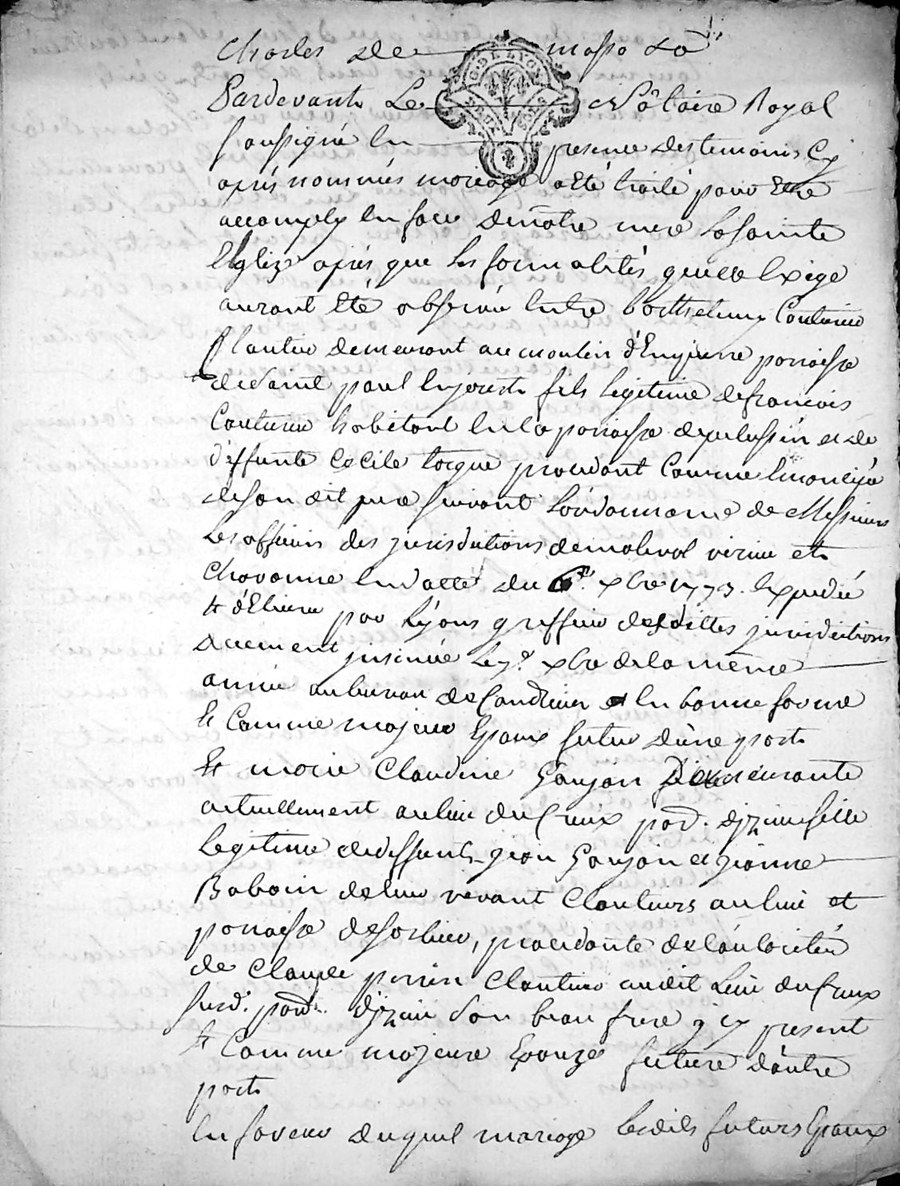 Charles de maso &c
G. DE LYON
Pardevant Le Notaire Royal
soussigné En presence des temoins cy
après nommés mariage a été traité pour Etre
accomply En face de nôtre mere la sainte
Eglize après que les formalités qu'elle Exige
auront été observé Entre barthelemy Couturier
demeurant au moulin d'Enjarre parroisse
de saint paul En jarest fils legitime de francois
Couturier habitant En la parroisse de pelussin et de
deffunte Cecile procedant Comme Emancipé
de son dit pere suivant L'ordonnance de Messieurs
Les officiers des jurisdictions de malval virieu et
Chavanne En datte du 6e. xbre 1773. Expedié
& d'Elivré par Lyons greffier desdittes jurisdictions
duement jnsinuée Le 7e. xbre de la même
année au bureau de Condrieu En bonne forme
& Comme majeur Epoux futur d'une part
Et marie Claudine Goujon Demeurante
actuellement au lieu du Creux parr. d'jzieu fille
Legitime de deffunt jean Goujon et jeanne
Baboin de leur vivant Cloutiers au lieu et
parroisse de sorbier, procedante de l'autorité
de Claude perrin Cloutier audit Lieu du Creux
susd. parr. d'jzieu son beau frere y cy present
& Comme majeure Epouze future d'autre
part
En faveur duquel mariage Lesdits futurs Epoux